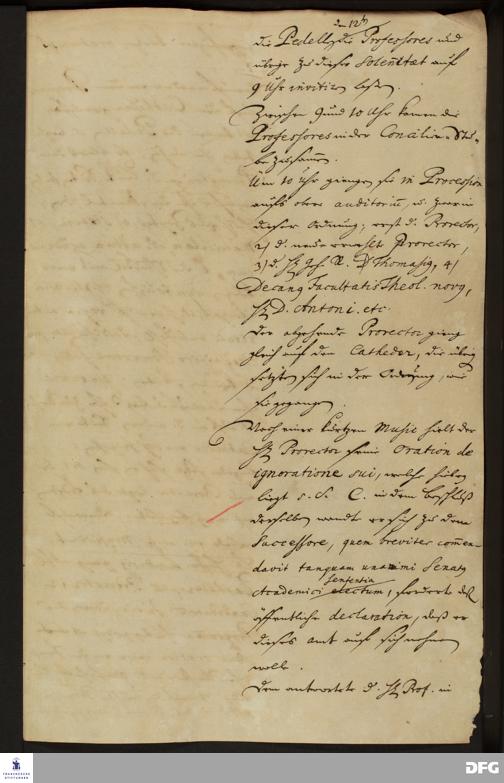 den 12t
die Pedell die Professores und
übrige zu dieser Solennitæt auf
9 Uhr invitiren lassen.
Zwischen 9 und 10 Uhr kamen die
Professores in der Concilien-Stu-
be zusammen.
Um 10 Uhr giengen sie in Procession
aufs obere auditoriū, u. zwar in
dieser Ordnung, erst d. Prorector,
2) d. neue erwehlte Prorector,
3) d. H. Geh. R. Thomasig, 4)
Decang Facultatis Theol. novg,
H. D. Antoni. etc.
Der abgehende Prorector gieng
gleich auf den Catheder, die übrig
setzten sich in der Ordnung, wie
sie gegangen.
Nach einer kurtzen Music hielt der
H. Prorector seine Oration de
ignoratione sui, welche hiebey
liegt s. S. C. in dem Beschluß
derselben wandte er sich zu dem
Successore, quem breviter commen-
davit tanquam unanimi Senatg
sententia
Academici electum, forderte deß
öffentliche declaration, daß er
dieses amt auf sich nehmen
wolle.
Dem antwortete d. H. Prof. in
FRANCKESCHE STIFTUNGEN
DFG